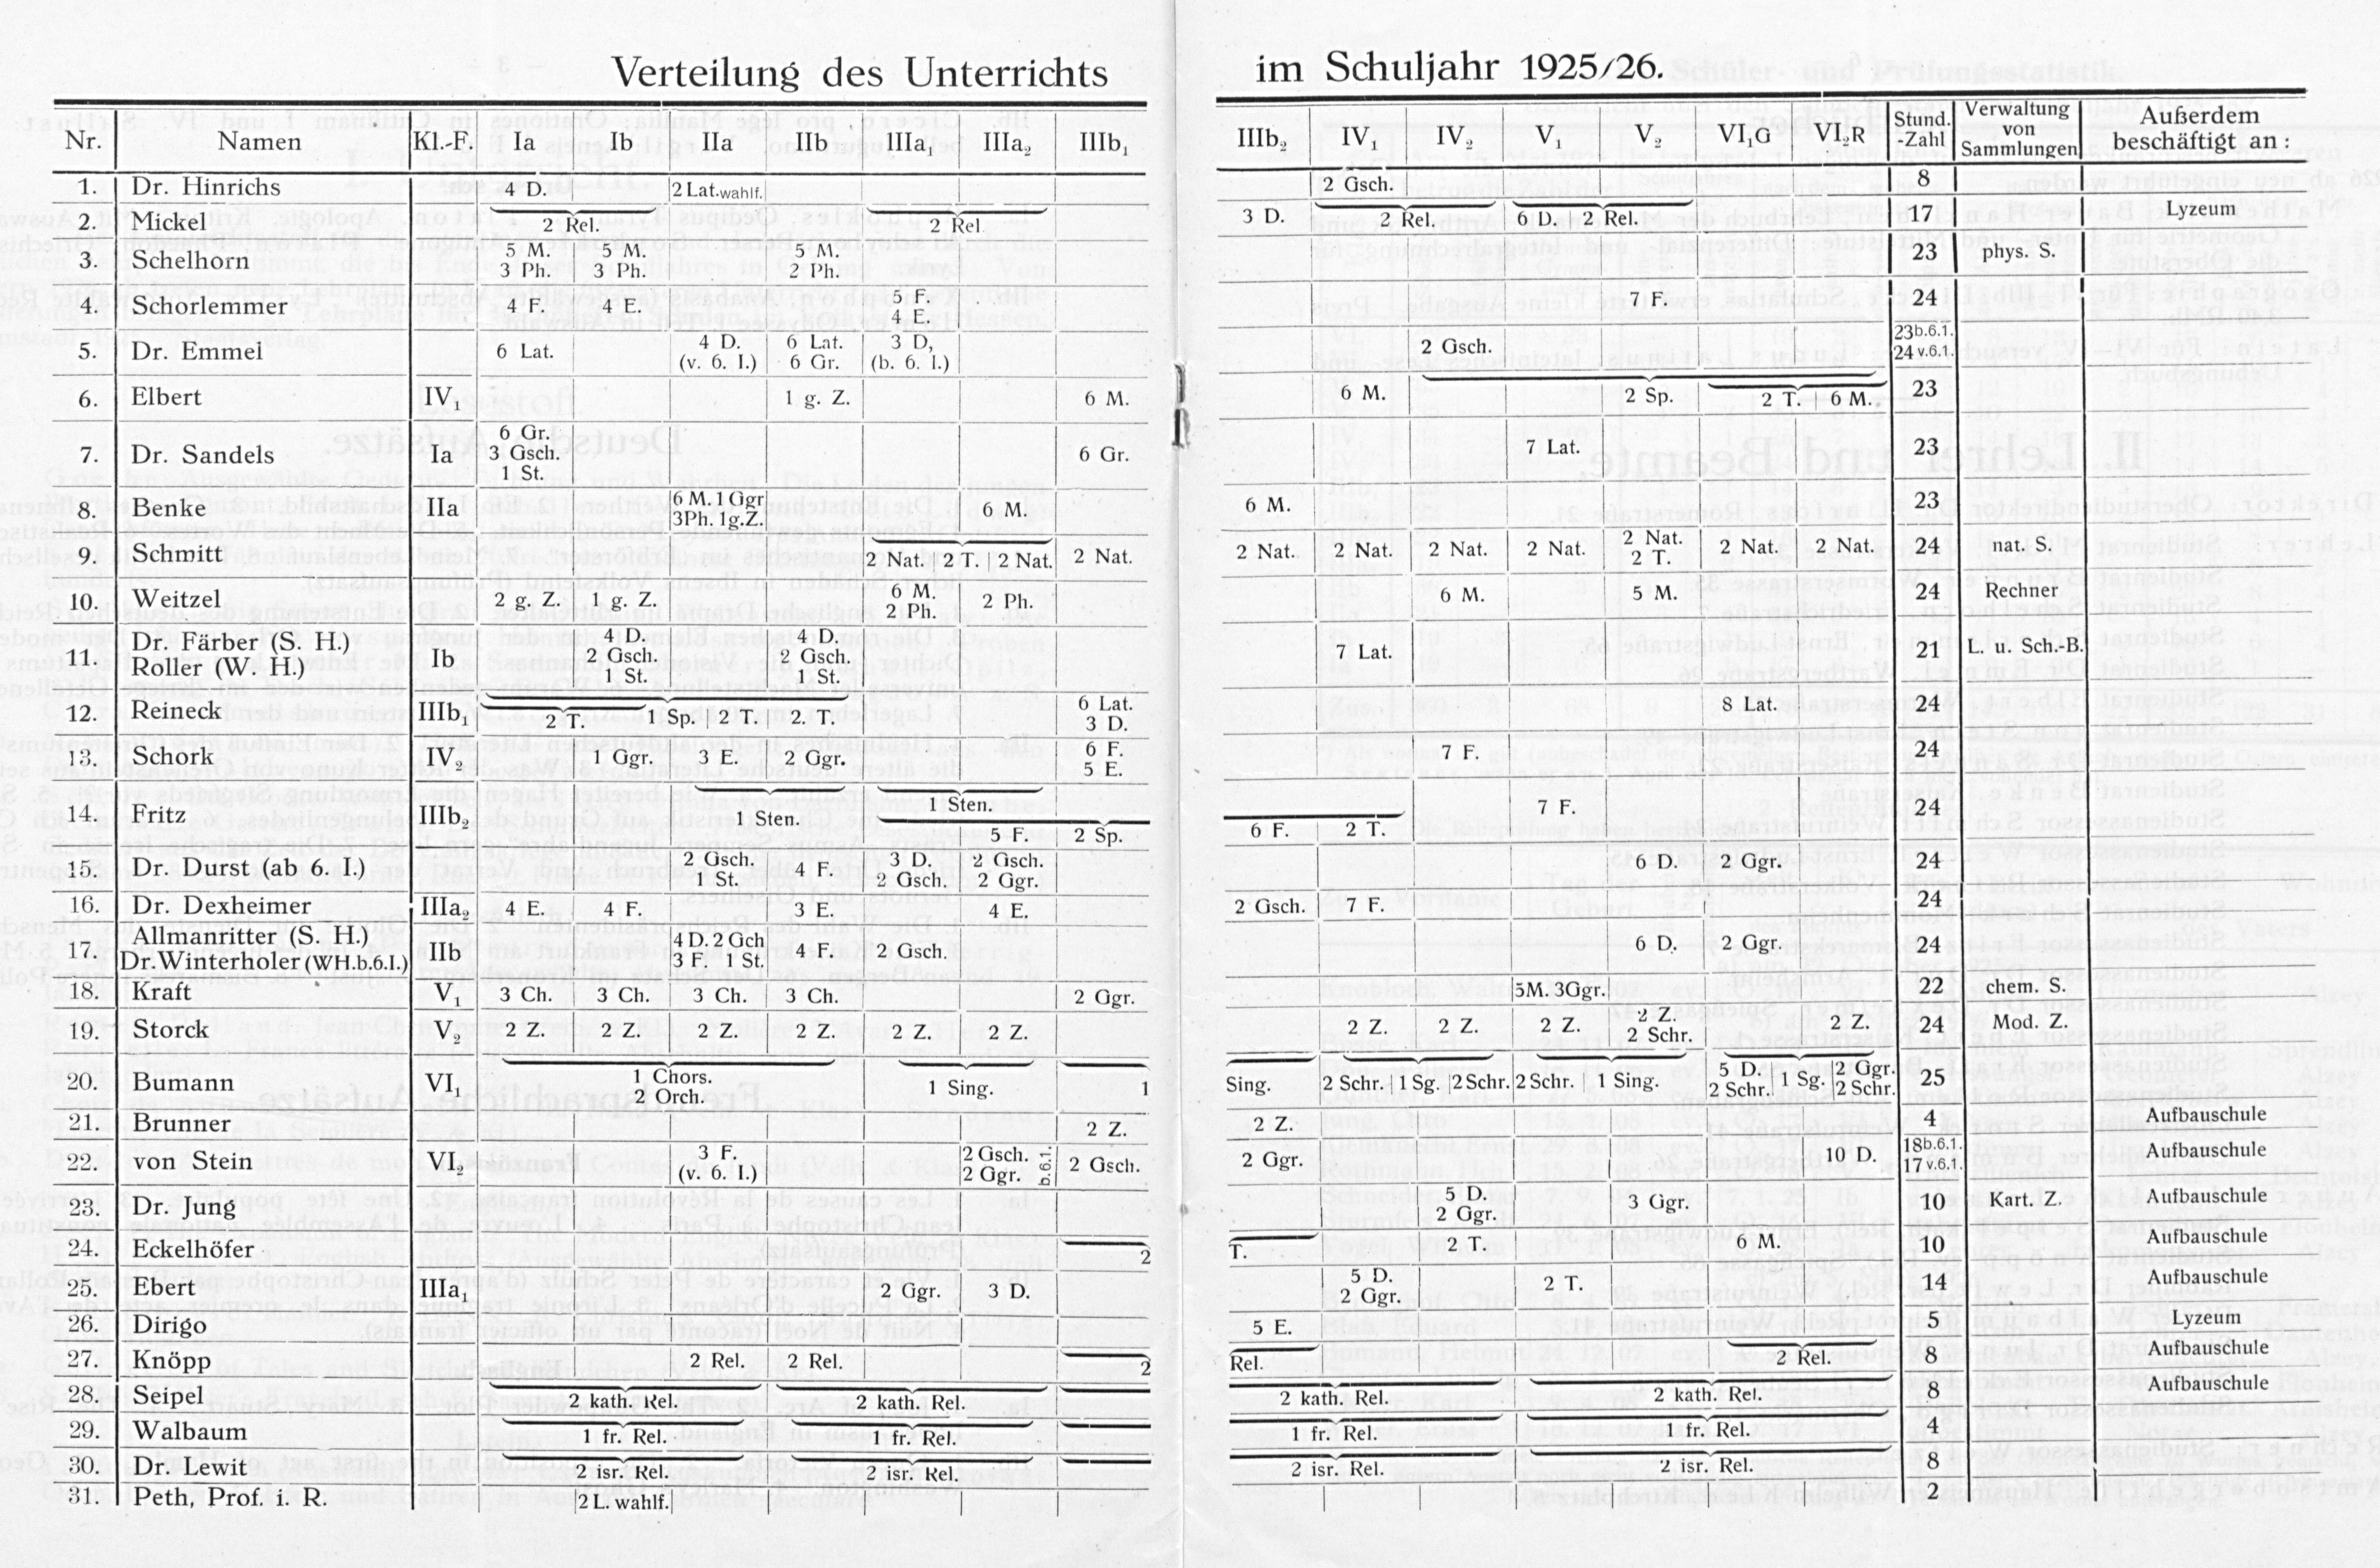 Verteilung des Unterrichts im Schuljahr 1925/26.
Nr. Namen Kl.-F. Ia Ib IIa IIb IIIa₁ IIIa₂ IIIb₁ IIIb₂ IV₁ IV₂ V₁ V₂ VI,G VI,R Stund.-Zahl Verwaltung von Sammlungen Außerdem beschäftigt an:
1. Dr. Hinrichs 4 D. 2 Lat. wahlf. 2 Gsch. 8
2. Mickel 2 Rel. 2 Rel. 3 D. 2 Rel. 6 D. 2 Rel. 17 Lyzeum
3. Schelhorn 5 M. 3 Ph. 5 M. 3 Ph. 5 M. 2 Ph. 23 phys. S.
4. Schorlemmer 4 F. 4 E. 5 F. 4 E. 7 F. 24
5. Dr. Emmel 6 Lat. 4 D. (v. 6. I.) 6 Lat. 6 Gr. 3 D, (b. 6. I.) 2 Gsch. 23 b.6.1. 24 v.6.1.
6. Elbert IV₁ 1 g. Z. 6 M. 6 M. 2 Sp. 2 T. 6 M. 23
7. Dr. Sandels Ia 6 Gr. 3 Gsch. 1 St. 6 Gr. 7 Lat. 23
8. Benke IIa 6 M. 1 Ggr 3Ph. 1g.Z. 6 M. 6 M. 23
9. Schmitt 2 Nat. 2 T. 2 Nat. 2 Nat. 2 Nat. 2 Nat. 2 Nat. 2 Nat. 2 Nat. 2 T. 2 Nat. 2 Nat. 24 nat. S.
10. Weitzel 2 g. Z. 1 g. Z. 6 M. 2 Ph. 2 Ph. 6 M. 5 M. 24 Rechner
11. Dr. Färber (S. H.) Roller (W. H.) Ib 4 D. 2 Gsch. 1 St. 4 D. 2 Gsch. 1 St. 7 Lat. 21 L. u. Sch.-B.
12. Reineck IIIb₁ 2 T. 1 Sp. 2 T. 2. T. 6 Lat. 3 D. 8 Lat. 24
13. Schork IV₂ 1 Ggr. 3 E. 2 Ggr. 6 F. 5 E. 7 F. 24
14. Fritz IIIb₂ 1 Sten. 1 Sten. 5 F. 2 Sp. 6 F. 2 T. 7 F. 24
15. Dr. Durst (ab 6. I.) 2 Gsch. 1 St. 4 F. 3 D. 2 Gsch. 2 Gsch. 2 Ggr. 6 D. 2 Ggr. 24
16. Dr. Dexheimer IIIa₂ 4 E. 4 F. 3 E. 4 E. 2 Gsch. 7 F. 24
17. Allmanritter (S. H.) Dr. Winterholer (WH.b.6.I.) IIb 4 D. 2 Gch 3 F. 1 St. 4 F. 2 Gsch. 6 D. 2 Ggr. 24
18. Kraft V₁ 3 Ch. 3 Ch. 3 Ch. 3 Ch. 2 Ggr. 5M. 3Ggr. 22 chem. S.
19. Storck V₂ 2 Z. 2 Z. 2 Z. 2 Z. 2 Z. 2 Z. 2 Z. 2 Z. 2 Z. 2 Z. 2 Schr. 2 Z. 24 Mod. Z.
20. Bumann VI₁ 1 Chors. 2 Orch. 1 Sing. 1 Sing. 2 Schr. 1 Sg. 2 Schr. 2 Schr. 1 Sing. 5 D. 2 Schr. 1 Sg. 2 Ggr. 2 Schr. 25
21. Brunner 2 Z. 2 Z. 4 Aufbauschule
22. von Stein VI₂ 3 F. (v. 6. I.) 2 Gsch. 2 Ggr. b.6.1. 2 Gsch. 2 Ggr. 10 D. 18 b.6.1. 17 v.6.1. Aufbauschule
23. Dr. Jung 5 D. 2 Ggr. 3 Ggr. 10 Kart. Z. Aufbauschule
24. Eckelhöfer 2 T. 2 T. 6 M. 10 Aufbauschule
25. Ebert IIIa₁ 2 Ggr. 3 D. 5 D. 2 Ggr. 2 T. 14 Aufbauschule
26. Dirigo 5 E. 5 Lyzeum
27. Knöpp 2 Rel. 2 Rel. 2 Rel. 2 Rel. 8 Aufbauschule
28. Seipel 2 kath. Rel. 2 kath. Rel. 2 kath. Rel. 2 kath. Rel. 8 Aufbauschule
29. Walbaum 1 fr. Rel. 1 fr. Rel. 1 fr. Rel. 1 fr. Rel. 4
30. Dr. Lewit 2 isr. Rel. 2 isr. Rel. 2 isr. Rel. 2 isr. Rel. 8
31. Peth, Prof. i. R. 2 L. wahlf. 2